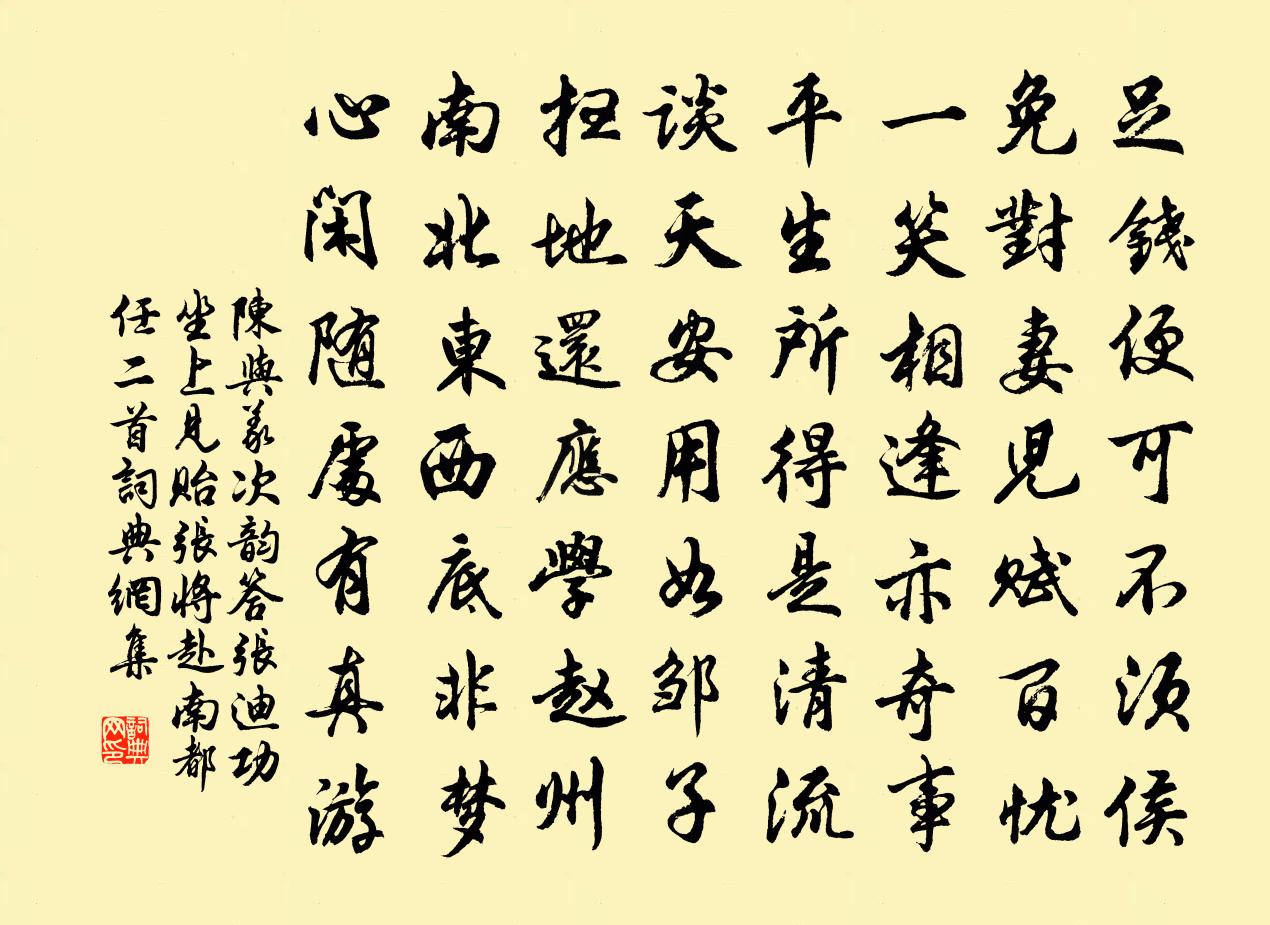 足錢便可不須侯
免對妻児賦百忧
一笑相逢亦奇事
平生所得是清流
談天安用如邹子
扫地還應學赵州
南北東西底非梦
心閑随處有真游
陳與義次韵答張迪功
坐上見貽張將赴南都
任二首詞典網集
詞典网印